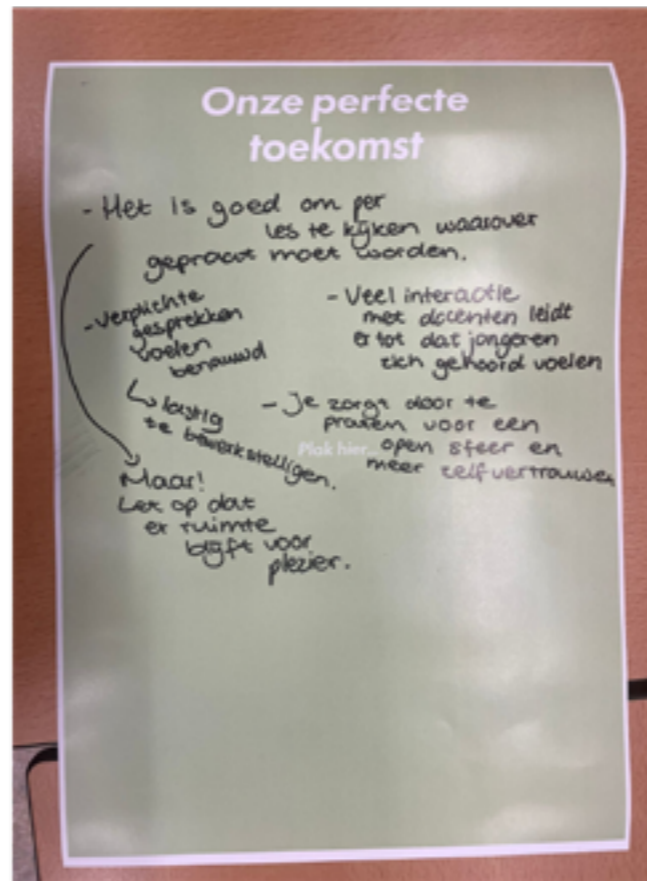 Onze perfecte
toekomst
- Het is goed om per
les te kijken waarover
gepraat moet worden.
- Verplichte
gesprekken
voelen
benauwd
↳ lastig
te bewerkstelligen.
- Veel interactie
met docenten leidt
er tot dat jongeren
zich gehoord voelen
- Je zorgt door te
praten voor een
open sfeer en
meer zelfvertrouwen
Plak hier
Maar!
Let op dat
er ruimte
blijft voor
plezier.